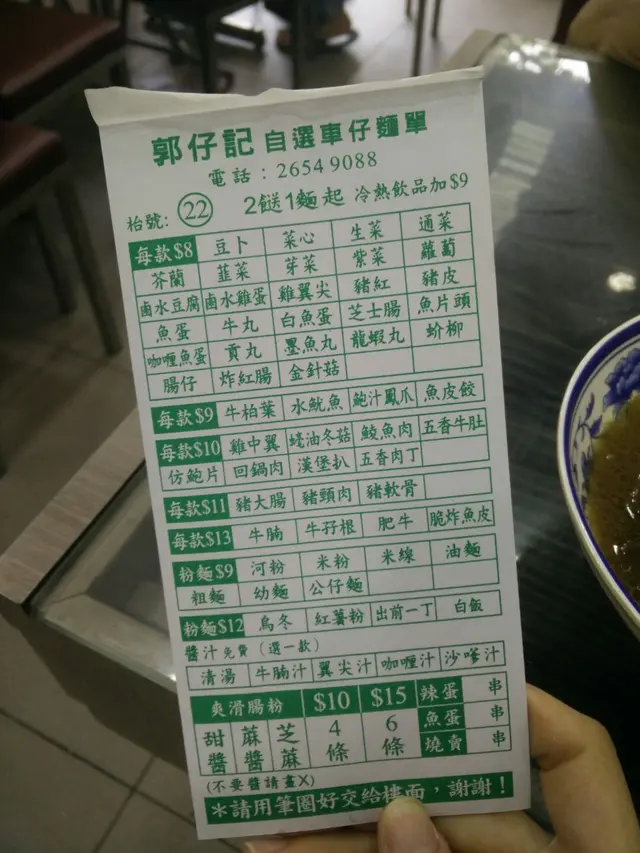 郭仔記 自選車仔麵單
電話：2654 9088
枱號: 22 2餸送1麵起 冷熱飲品加$9
每款$8 豆卜 菜心 生菜 通菜
芥蘭 韮菜 芽菜 紫菜 蘿蔔
鹵水豆腐 鹵水雞蛋 雞翼尖 豬紅 豬皮
魚蛋 牛丸 白魚蛋 芝士腸 魚片頭
咖喱魚蛋 貢丸 墨魚丸 龍蝦丸 蚧柳
腸仔 炸紅腸 金針菇
每款$9 牛柏葉 水魷魚 鮑汁鳳爪 魚皮餃
每款$10 雞中翼 蠔油冬菇 鯪魚肉 五香牛肚
仿鮑片 回鍋肉 漢堡扒 五香肉丁
每款$11 豬大腸 豬頸肉 豬軟骨
每款$13 牛腩 牛孖根 肥牛 脆炸魚皮
粉麵$9 河粉 米粉 米線 油麵
粗麵 幼麵 公仔麵
粉麵$12 烏冬 紅薯粉 出前一丁 白飯
醬汁免費（選一款）
清湯 牛腩汁 翼尖汁 咖喱汁 沙爹汁
爽滑腸粉 $10 $15 辣蛋 串
甜醬 蔴醬 芝蔴 4條 6條 魚蛋 串
燒賣 串
(不要醬請畫X)
＊請用筆圈好交給樓面，謝謝！